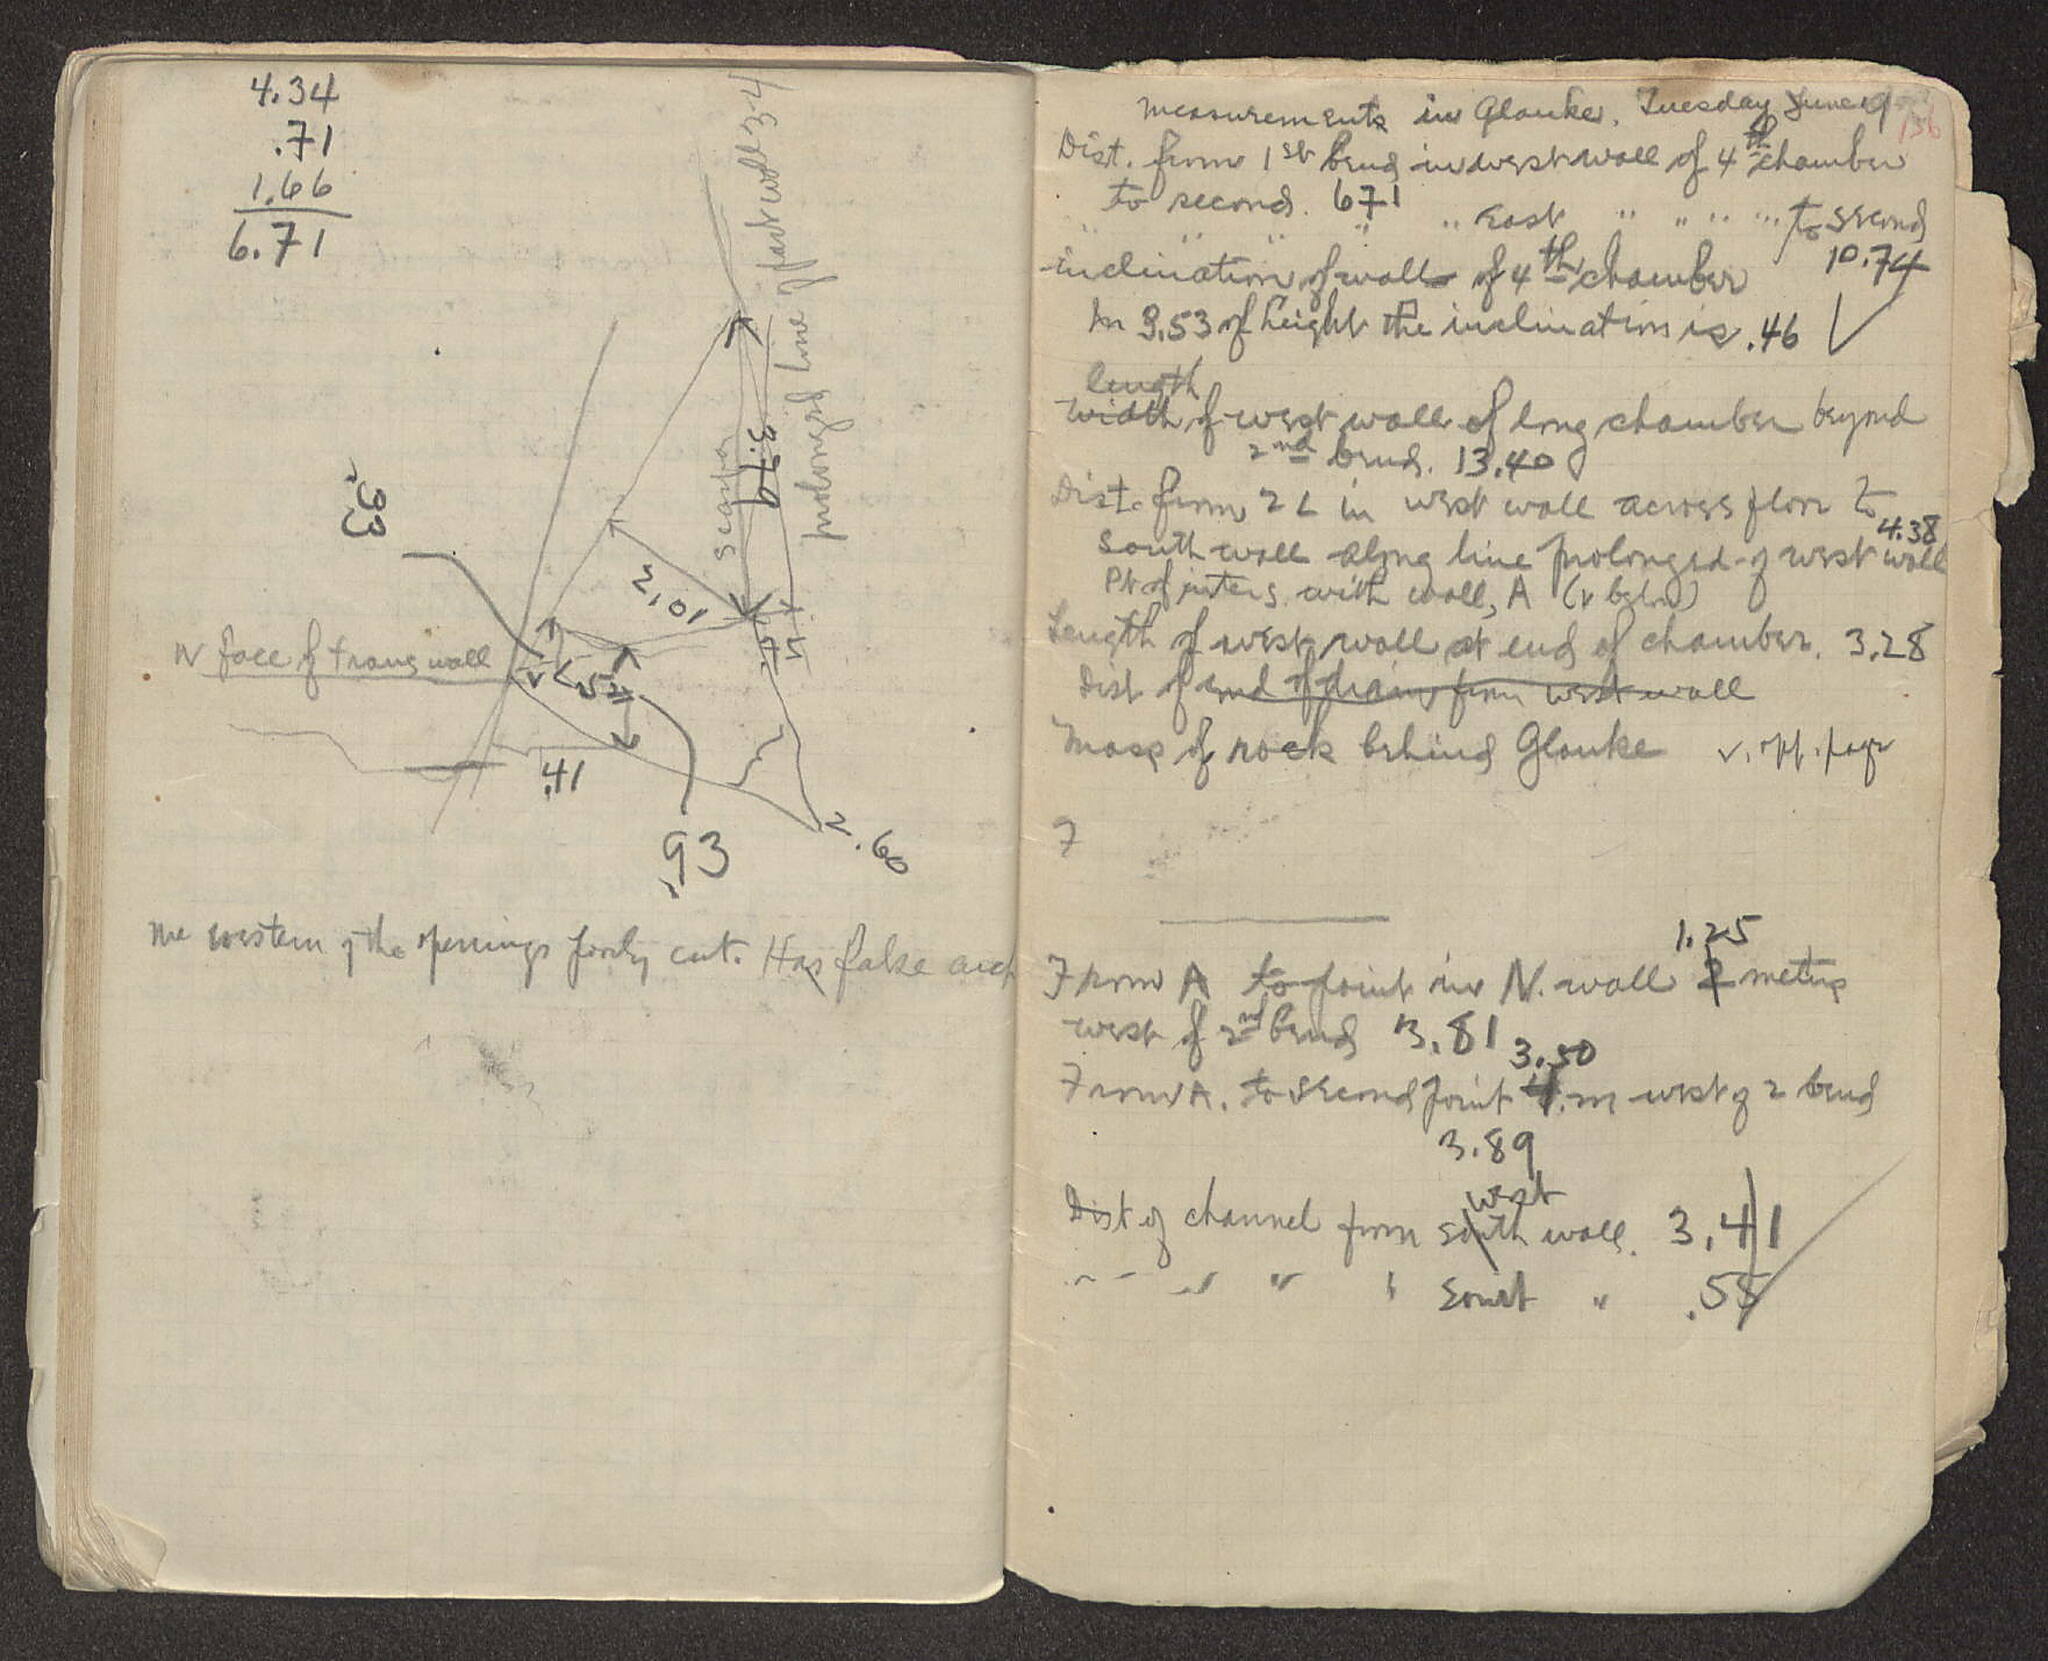 4.34
.71
1.66
6.71
prolonged line of part wall 3-4
3.79
.93
2.01
N face of trans wall
.52
.41
.93
2.60
western of the openings cut. Has false arch
Measurements in Glauke. Tuesday June 19
136
Dist. from 1st bend in west wall of 4th chamber
to second. 671
" " " " " East " " " " to second
10.74
inclination of walls of 4th chamber
In 3.53 of height the inclination is .46
length
width of west wall of long chamber beyond
2nd bend. 13.40
Dist. from 2 L in west wall across floor to
4.38
south wall along line prolonged of west wall
Pt of inters. with wall, A (v below)
Length of west wall at end of chamber. 3.28
Dist of end of drain from west wall
Mass of rock behind Glauke v. opp. page
7
1.25
From A to joint in N. wall 2 meters
west of 2nd bend 3.81
3.50
From A. to second joint 4. m west of 2 bend
3.89
west
Dist of channel from south wall. 3.41
" " " " " " .55